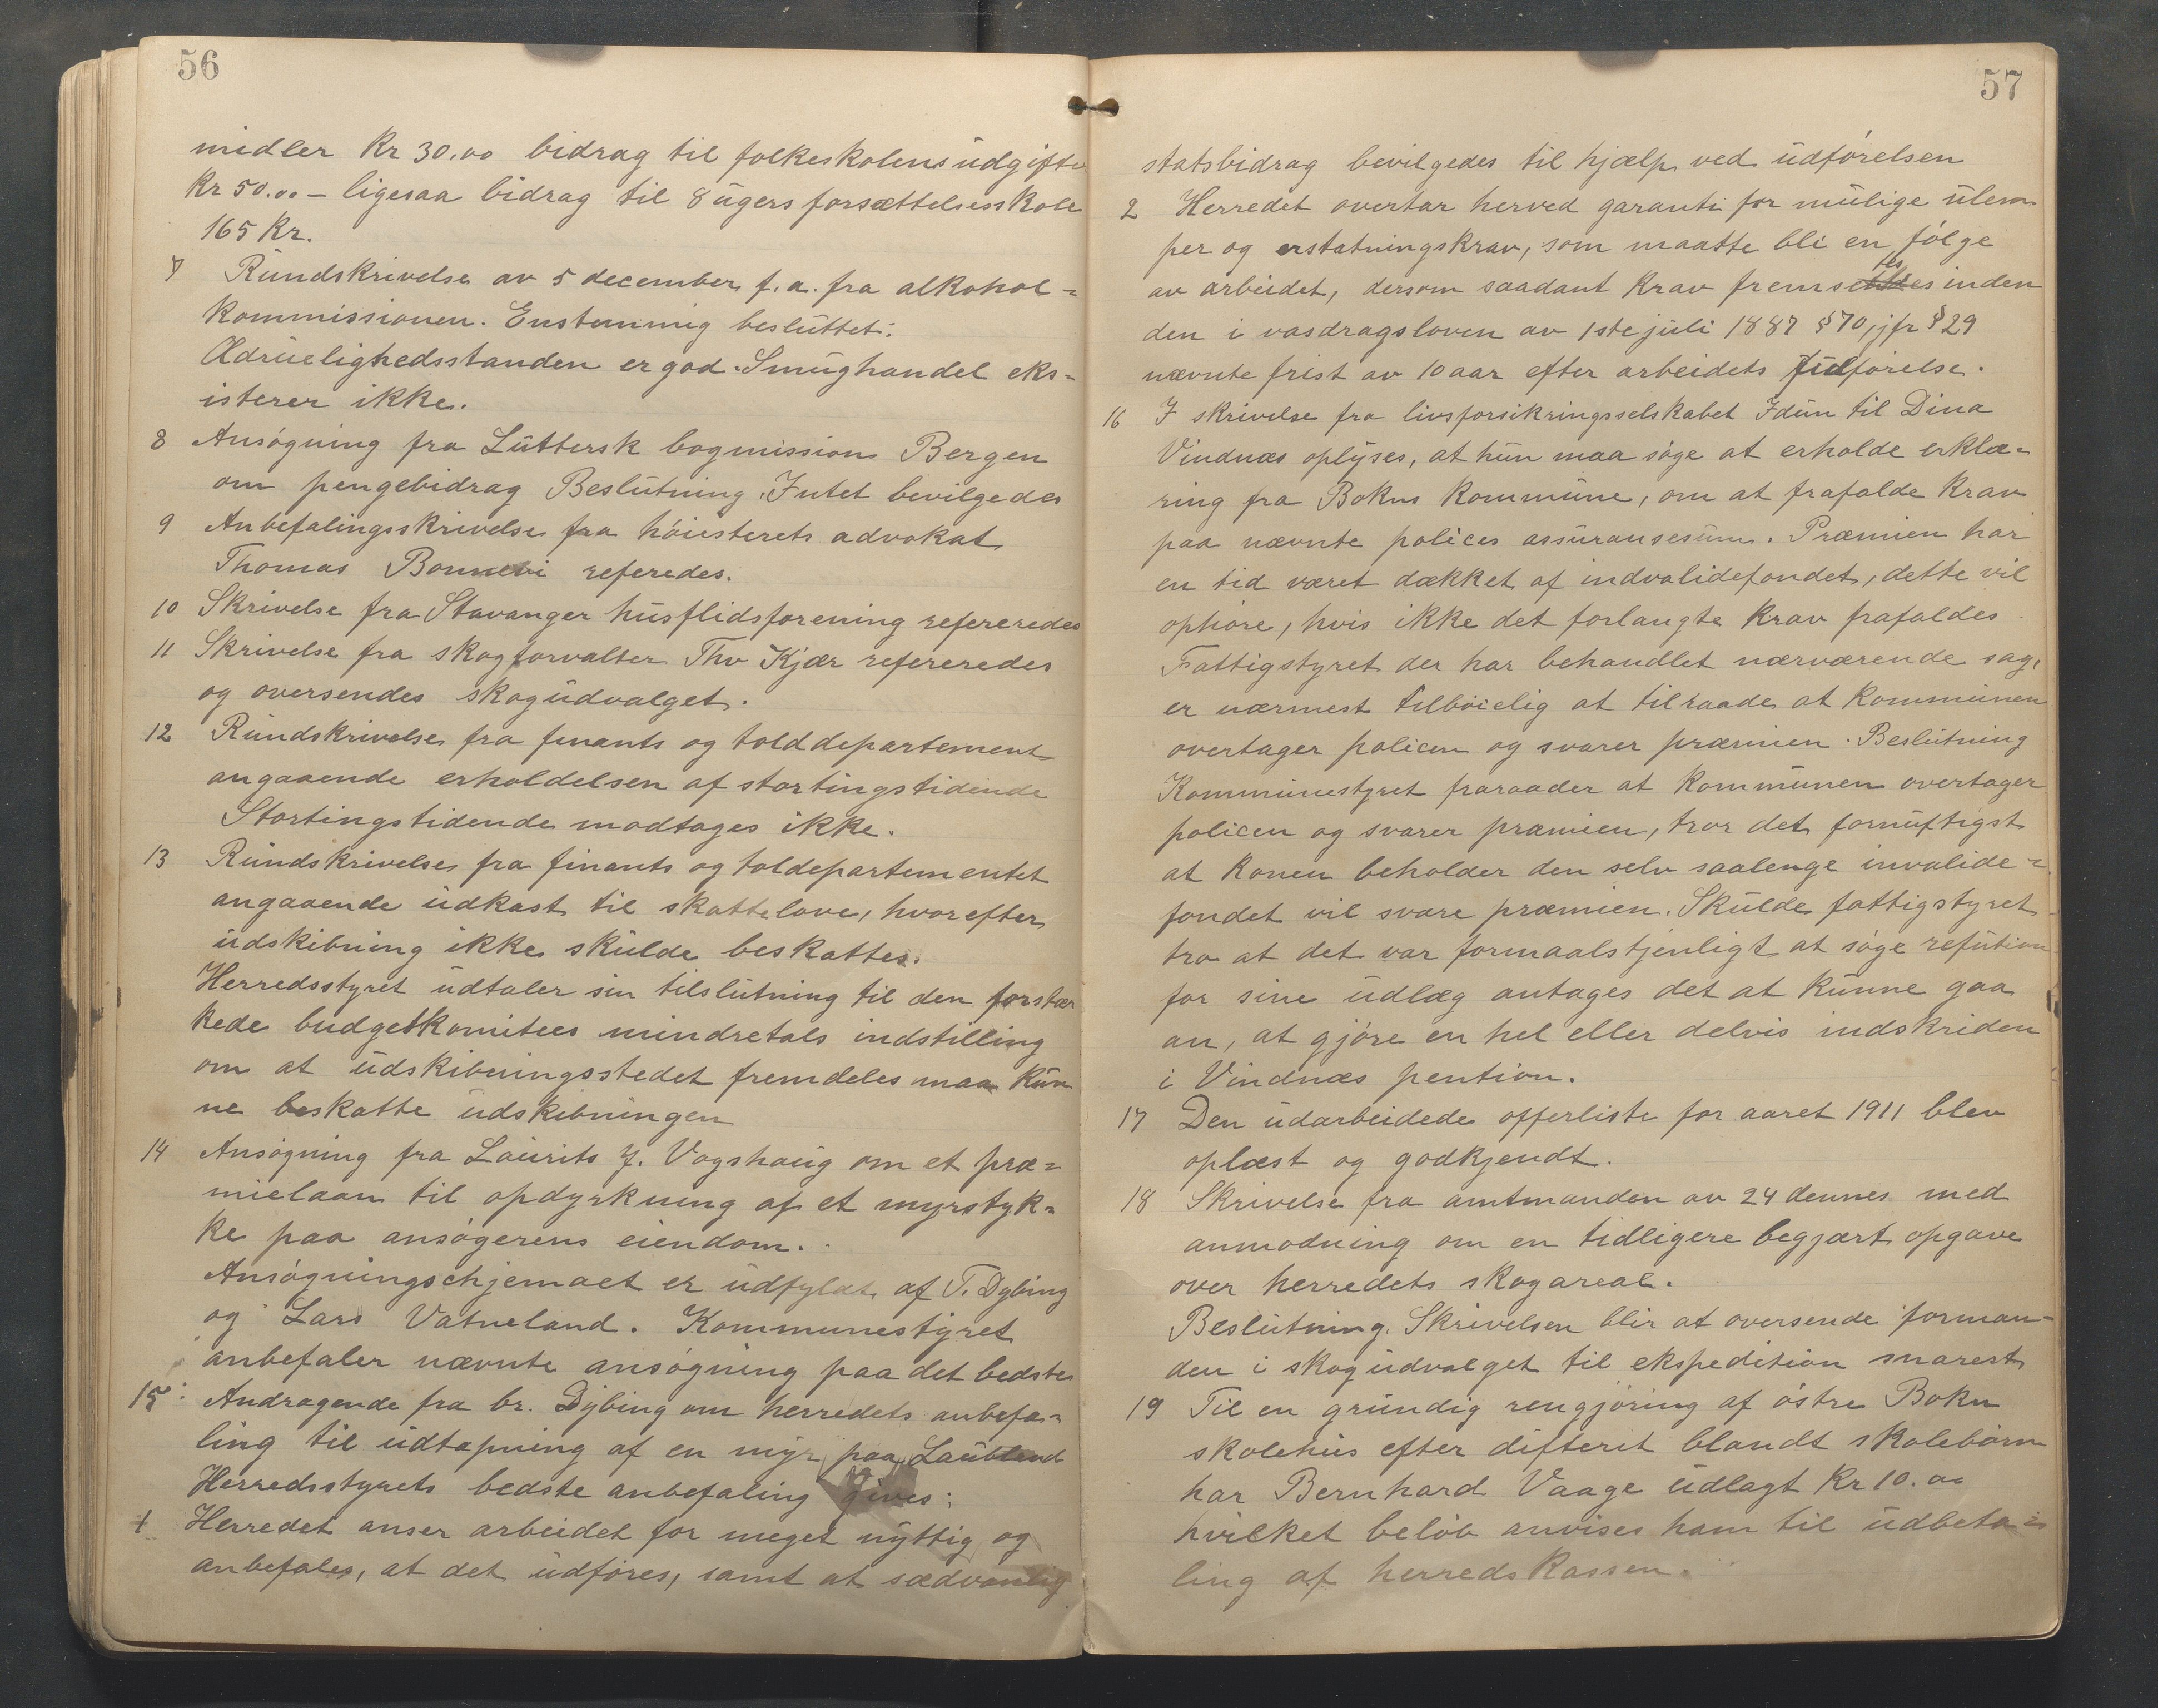 56
midler Kr 30.00 bidrag til folkeskolens udgifte
Kr 50.00 – ligesaa bidrag til 8 ugers forsættelsesskole
165 Kr.
7 Rundskrivelse av 5 december f.a. fra alkohol=
kommissionen. Enstemmig besluttet:
Ædruelighedsstanden er god. Smughandel eks=
isterer ikke.
8 Ansøgning fra Luttersk bogmission Bergen
om pengebidrag Beslutning. Intet bevilgedes
9 Anbefalingsskrivelse fra høiesterets advokat
Thomas Bonnevi referedes.
10 Skrivelse fra Stavanger husflidsforening refereredes
11 Skrivelse fra skogforvalter Thv Kjær refereredes
og oversendes skogudvalget.
12 Rundskrivelse fra finants og tolddepartement
angaaende erholdelsen af stortingstidende
Stortingstidende modtages ikke.
13 Rundskrivelse fra finants og toldepartementet
angaaende udkast til skattelove, hvorefter
udskibning ikke skulde beskattes.
Herredsstyret udtaler sin tilslutning til den forstær
kede budgetkomitees mindretals indstilling
om at udskibningsstedet fremdeles maa kun
ne beskatte udskibningen
14 Ansøgning fra Laurits J. Vagshaug om et præ=
mielaan til opdyrkning af et myrstyk=
ke paa ansøgerens eiendom.
Ansøgningschjemaet er udfyldt af T. Dybing
og Lars Vatneland. Kommunestyret
anbefaler nævnte ansøgning paa det bedste
15: Andragende fra br. Dybing om herredets anbefa=
ling til udtapning af en myr paa Laubland
Herredsstyrets bedste anbefaling gives:
1 Herredet anser arbeidet for meget nyttig og
anbefales, at det udføres, samt at sædvanlig
57
statsbidrag bevilgedes til hjælp ved udførelsen
2 Herredet overtar herved garanti for mulige ulem
per og erstatningskrav, som maatte bli en følge
av arbeidet, dersom saadant krav fremsettes inden
den i vasdragsloven av 1ste juli 1887 § 70, jfr § 29
nævnte frist av 10 aar efter arbeidets fulførelse.
16 I skrivelse fra livsforsikringsselskabet Idun til Dina
Vindnæs oplyses, at hun maa søge at erholde erklæ=
ring fra Bokns kommune, om at frafalde krav
paa nævnte polices assuransesum. Præmien har
en tid været dækket af indvalidefondet, dette vil
ophøre, hvis ikke det forlangte krav frafaldes
Fattigstyret der har behandlet nærværende sag,
er nærmest tilbøielig at tilraade at kommunen
overtager policen og svarer præmien. Beslutning
Kommunestyret fraraader at kommunen overtager
policen og svarer præmien, tror det fornuftigst
at konen beholder den selv saalenge invalide=
fondet vil svare præmien. Skulde fattigstyret
tro at det var formaalstjenligt at søge refution
for sine udlæg antages det at kunne gaa
an, at gjøre en hel eller delvis indskriden
i Vindnæs pention.
17 Den udarbeidede offerliste for aaret 1911 blev
oplæst og godkjendt.
18 Skrivelse fra amtmanden av 24 dennes med
anmodning om en tidligere begjært opgave
over herredets skogareal.
Beslutning. Skrivelsen blir at oversende forman=
den i skogudvalget til ekspedition snarest
19 Til en grundig rengjøring af østre Bokn
skolehus efter difterit blandt skolebørn
har Bernhard Vaage udlagt Kr 10.00
hvilket beløb anvises ham til udbeta=
ling af herredskassen.